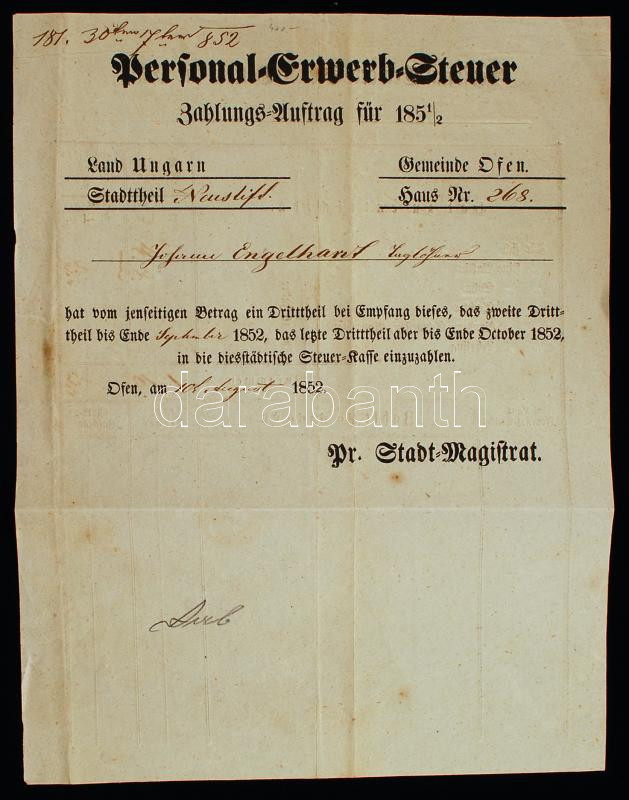 181. 30ten 7ber 852
Personal-Erwerb-Steuer
Zahlungs-Auftrag für 185 1/2
Land Ungarn
Gemeinde Ofen.
Stadttheil Neustift.
Haus Nr. 268.
Johann Engelhardt Taglöhner
hat vom jenseitigen Betrag ein Dritttheil bei Empfang dieses, das zweite Dritt-
theil bis Ende September 1852, das letzte Dritttheil aber bis Ende October 1852,
in die diesstädtische Steuer-Kasse einzuzahlen.
Ofen, am August 1852.
darabanth
Pr. Stadt-Magistrat.